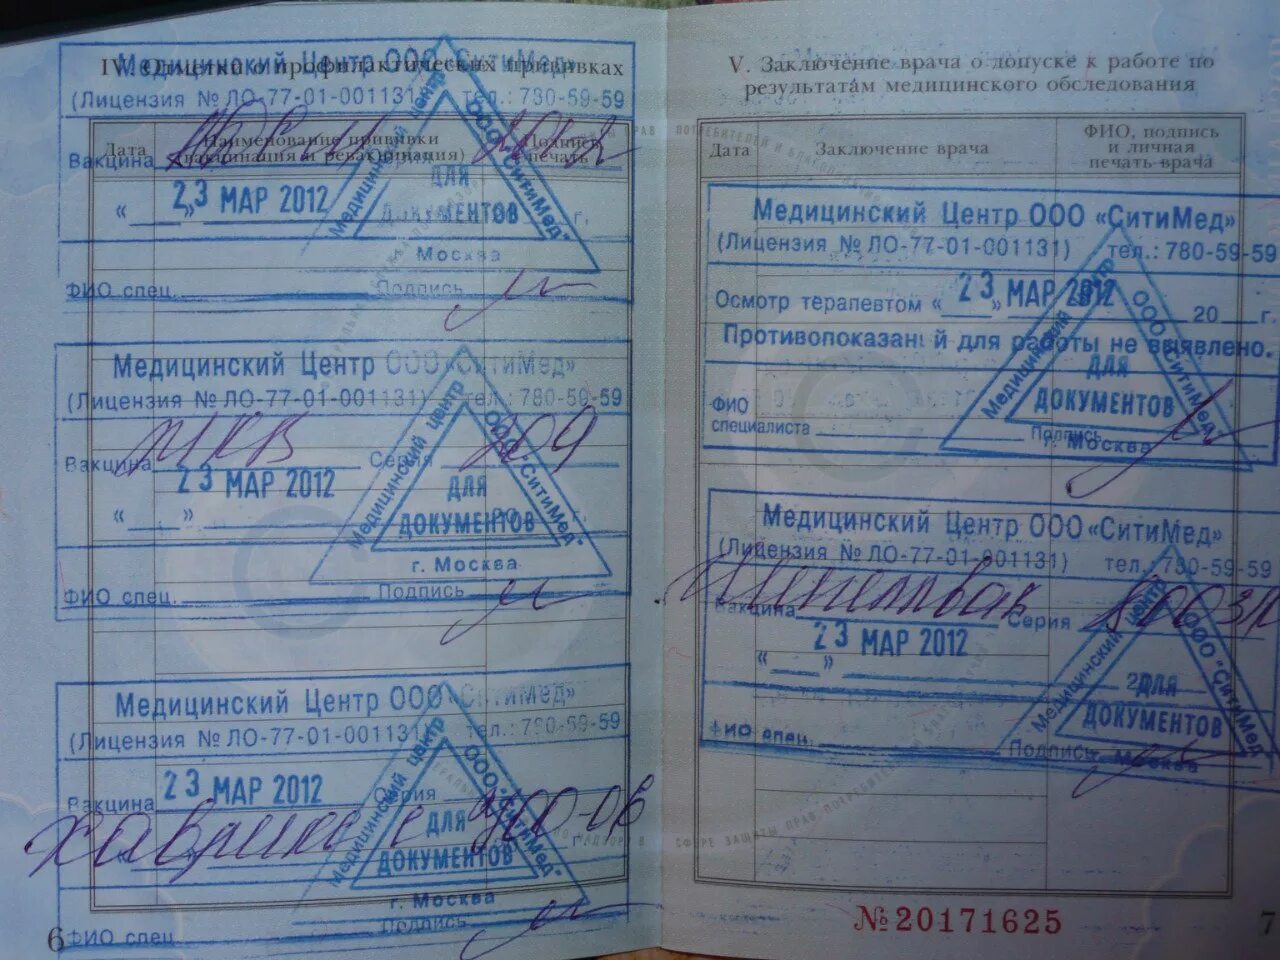 IV. Отметки о профилактических прививках
Медицинский Центр ООО «СитиМед»
(Лицензия № ЛО-77-01-001131) тел.: 780-59-59
Дата
Наименование прививки
(вакцинация и ревакцинация)
Подпись
печать
Вакцина
« » 23 МАР 2012 г.
Медицинский центр ООО "СитиМед"
ДЛЯ
ДОКУМЕНТОВ
Москва
ФИО спец. Подпись
Медицинский Центр ООО «СитиМед»
(Лицензия № ЛО-77-01-001131) тел.: 780-59-59
Вакцина ЖКВ Серия 209
23 МАР 2012
« »
Медицинский центр ООО "СитиМед"
ДЛЯ
ДОКУМЕНТОВ
г. Москва
ФИО спец. Подпись
Медицинский Центр ООО «СитиМед»
(Лицензия № ЛО-77-01-001131) тел.: 780-59-59
Вакцина 23 МАР 2012 Серия
Хаврикс
Медицинский центр ООО "СитиМед"
ДЛЯ
ДОКУМЕНТОВ
г. Москва
ФИО спец. Подпись
6
V. Заключение врача о допуске к работе по
результатам медицинского обследования
Дата
Заключение врача
ФИО, подпись
и личная
печать врача
Медицинский Центр ООО «СитиМед»
(Лицензия № ЛО-77-01-001131) тел.: 780-59-59
Осмотр терапевтом « 23 » МАР 2012 20 г.
Противопоказаний для работы не выявлено.
Медицинский центр ООО "СитиМед"
ДЛЯ
ДОКУМЕНТОВ
г. Москва
ФИО
специалиста Подпись
Медицинский Центр ООО «СитиМед»
(Лицензия № ЛО-77-01-001131) тел.: 780-59-59
Вакцина Серия
23 МАР 2012
« »
Медицинский центр ООО "СитиМед"
ДЛЯ
ДОКУМЕНТОВ
г. Москва
ФИО спец. Подпись
№20171625
7